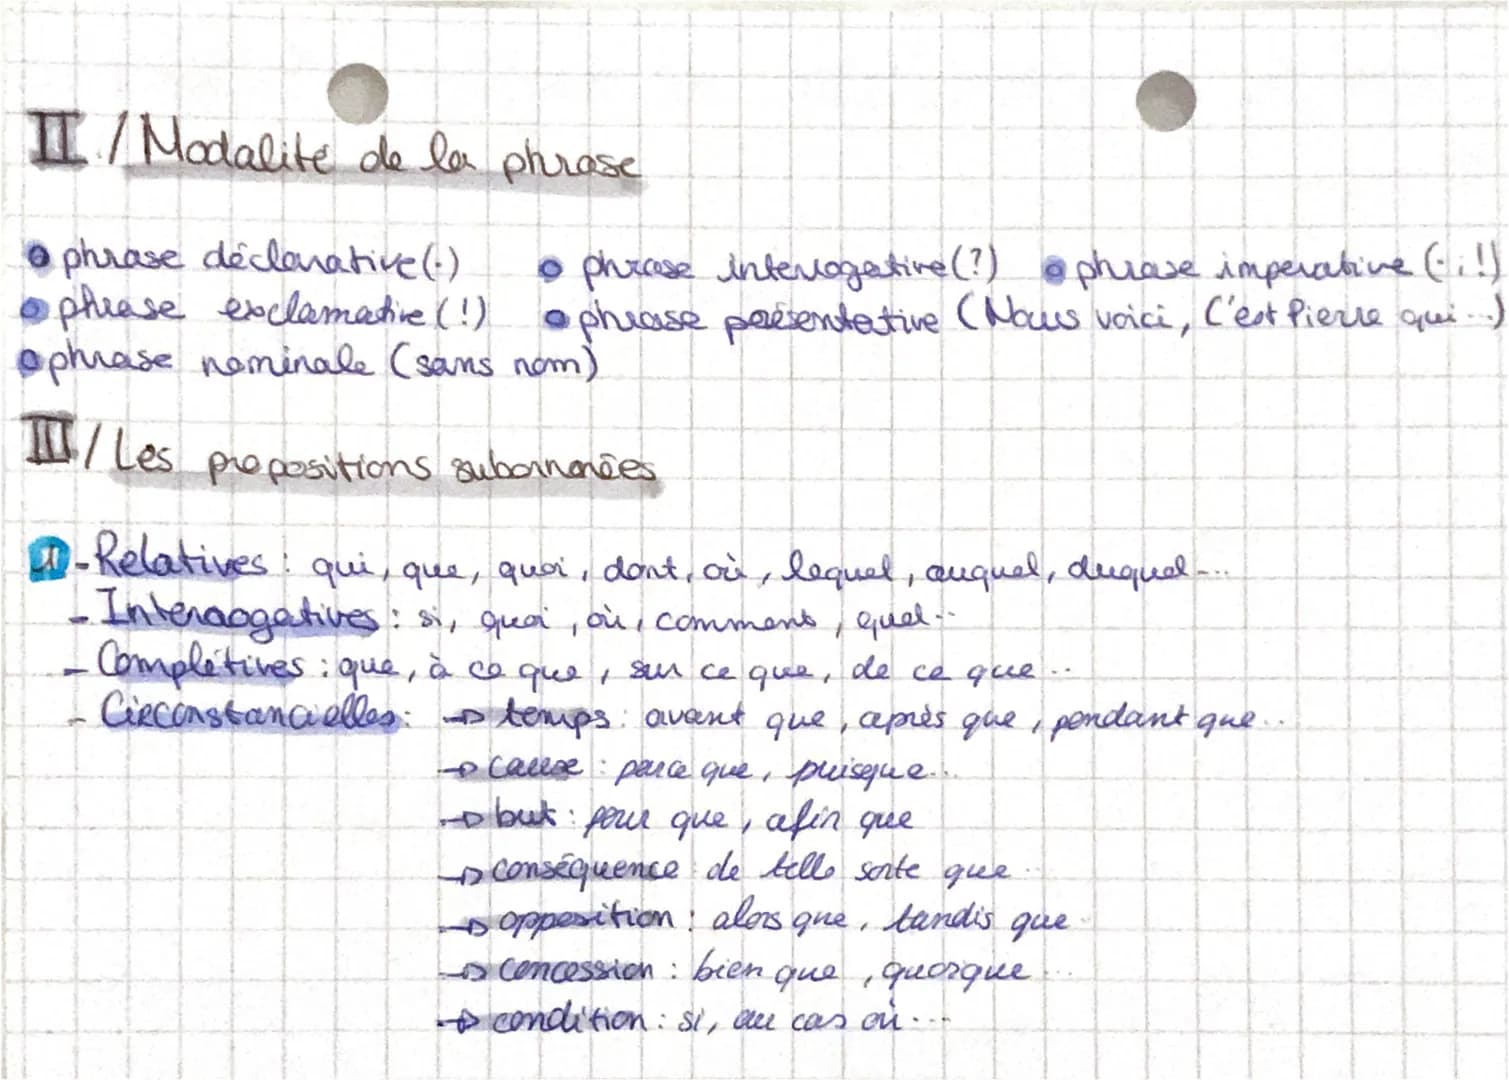 II / Modalité de la phrase
• phrase déclarative (.) • phrase interrogative (?) • phrase impérative (. ; !)
• phrase exclamative (!) • phrase présentative (Nous voici, C'est Pierre qui ...)
• phrase nominale (sans nom)
III / Les propositions subornonées
1 - Relatives : qui, que, quoi, dont, où, lequel, auquel, duquel ...
- Interrogatives : si, quoi, où, comment, quel ..
- Complétives : que, à ce que, sur ce que, de ce que ..
- Circonstancielles : → temps : avant que, après que, pendant que ..
→ cause : parce que, puisque ...
→ but : pour que, afin que
→ conséquence de telle sorte que ..
→ opposition : alors que, tandis que
→ concession : bien que, quoique ...
→ condition : si, au cas où ...